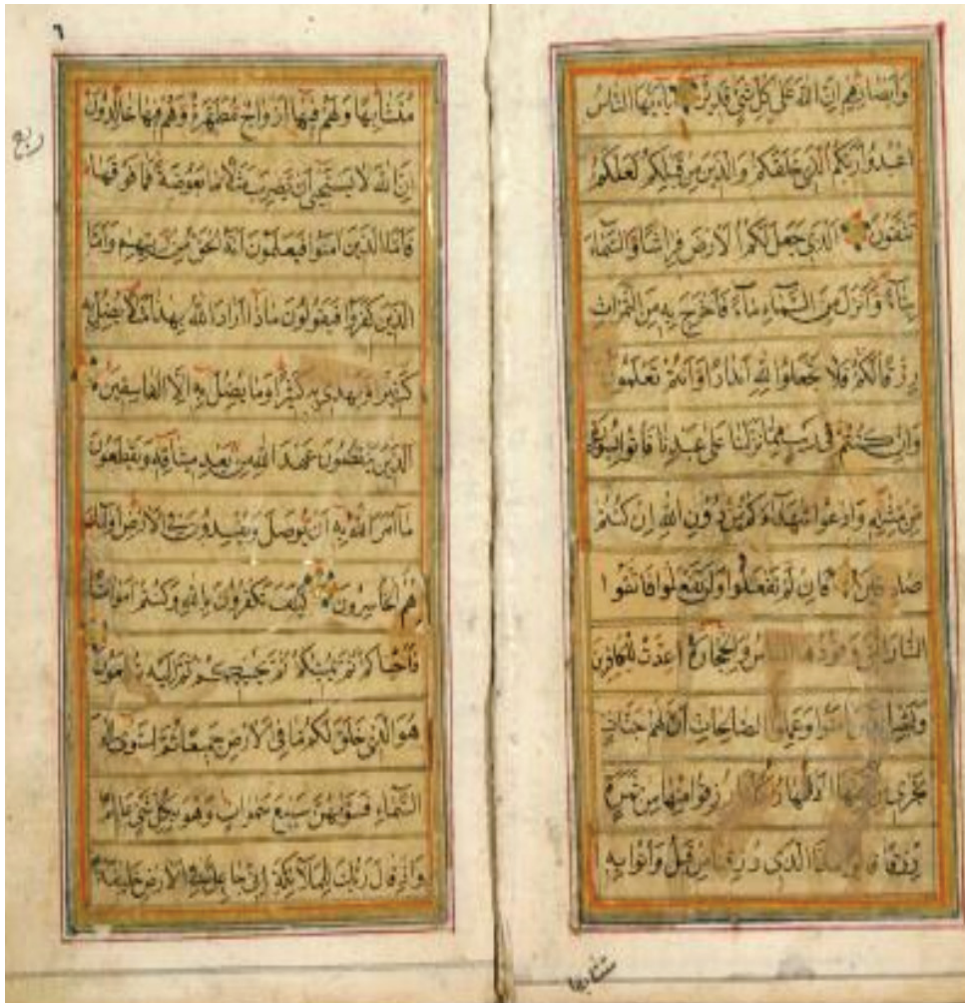 وَأَبْصَارِهِمْ إِنَّ اللهَ عَلَى كُلِّ شَيْءٍ قَدِيرٌ يَاءَيُّهَا النَّاسُ
اعْبُدُوا رَبَّكُمُ الَّذِي خَلَقَكُمْ وَالَّذِينَ مِنْ قَبْلِكُمْ لَعَلَّكُمْ
تَتَّقُونَ الَّذِي جَعَلَ لَكُمُ الْأَرْضَ فِرَاشًا وَالسَّمَاءَ
بِنَاءً وَأَنْزَلَ مِنَ السَّمَاءِ مَاءً فَأَخْرَجَ بِهِ مِنَ الثَّمَرَاتِ
رِزْقًا لَكُمْ فَلَا تَجْعَلُوا لِلَّهِ أَنْدَادًا وَأَنْتُمْ تَعْلَمُونَ
وَإِنْ كُنْتُمْ فِي رَيْبٍ مِمَّا نَزَّلْنَا عَلَى عَبْدِنَا فَأْتُوا بِسُورَةٍ
مِنْ مِثْلِهِ وَادْعُوا شُهَدَاءَكُمْ مِنْ دُونِ اللهِ إِنْ كُنْتُمْ
صَادِقِينَ فَإِنْ لَمْ تَفْعَلُوا وَلَنْ تَفْعَلُوا فَاتَّقُوا
النَّارَ الَّتِي وَقُودُهَا النَّاسُ وَالْحِجَارَةُ أُعِدَّتْ لِلْكَافِرِينَ
وَبَشِّرِ الَّذِينَ آمَنُوا وَعَمِلُوا الصَّالِحَاتِ أَنَّ لَهُمْ جَنَّاتٍ
تَجْرِي مِنْ تَحْتِهَا الْأَنْهَارُ كُلَّمَا رُزِقُوا مِنْهَا مِنْ ثَمَرَةٍ
رِزْقًا قَالُوا هَذَا الَّذِي رُزِقْنَا مِنْ قَبْلُ وَأُتُوا بِهِ
متشابها
٦
مُتَشَابِهًا وَلَهُمْ فِيهَا أَزْوَاجٌ مُطَهَّرَةٌ وَهُمْ فِيهَا خَالِدُونَ
ربع
إِنَّ اللهَ لَا يَسْتَحْيِي أَنْ يَضْرِبَ مَثَلًا مَا بَعُوضَةً فَمَا فَوْقَهَا
فَأَمَّا الَّذِينَ آمَنُوا فَيَعْلَمُونَ أَنَّهُ الْحَقُّ مِنْ رَبِّهِمْ وَأَمَّا
الَّذِينَ كَفَرُوا فَيَقُولُونَ مَاذَا أَرَادَ اللهُ بِهَذَا مَثَلًا يُضِلُّ بِهِ
كَثِيرًا وَيَهْدِي بِهِ كَثِيرًا وَمَا يُضِلُّ بِهِ إِلَّا الْفَاسِقِينَ
الَّذِينَ يَنْقُضُونَ عَهْدَ اللهِ مِنْ بَعْدِ مِيثَاقِهِ وَيَقْطَعُونَ
مَا أَمَرَ اللهُ بِهِ أَنْ يُوصَلَ وَيُفْسِدُونَ فِي الْأَرْضِ أُولَئِكَ
هُمُ الْخَاسِرُونَ كَيْفَ تَكْفُرُونَ بِاللهِ وَكُنْتُمْ أَمْوَاتًا
فَأَحْيَاكُمْ ثُمَّ يُمِيتُكُمْ ثُمَّ يُحْيِيكُمْ ثُمَّ إِلَيْهِ تُرْجَعُونَ
هُوَ الَّذِي خَلَقَ لَكُمْ مَا فِي الْأَرْضِ جَمِيعًا ثُمَّ اسْتَوَى إِلَى
السَّمَاءِ فَسَوَّاهُنَّ سَبْعَ سَمَوَاتٍ وَهُوَ بِكُلِّ شَيْءٍ عَلِيمٌ
وَإِذْ قَالَ رَبُّكَ لِلْمَلَائِكَةِ إِنِّي جَاعِلٌ فِي الْأَرْضِ خَلِيفَةً